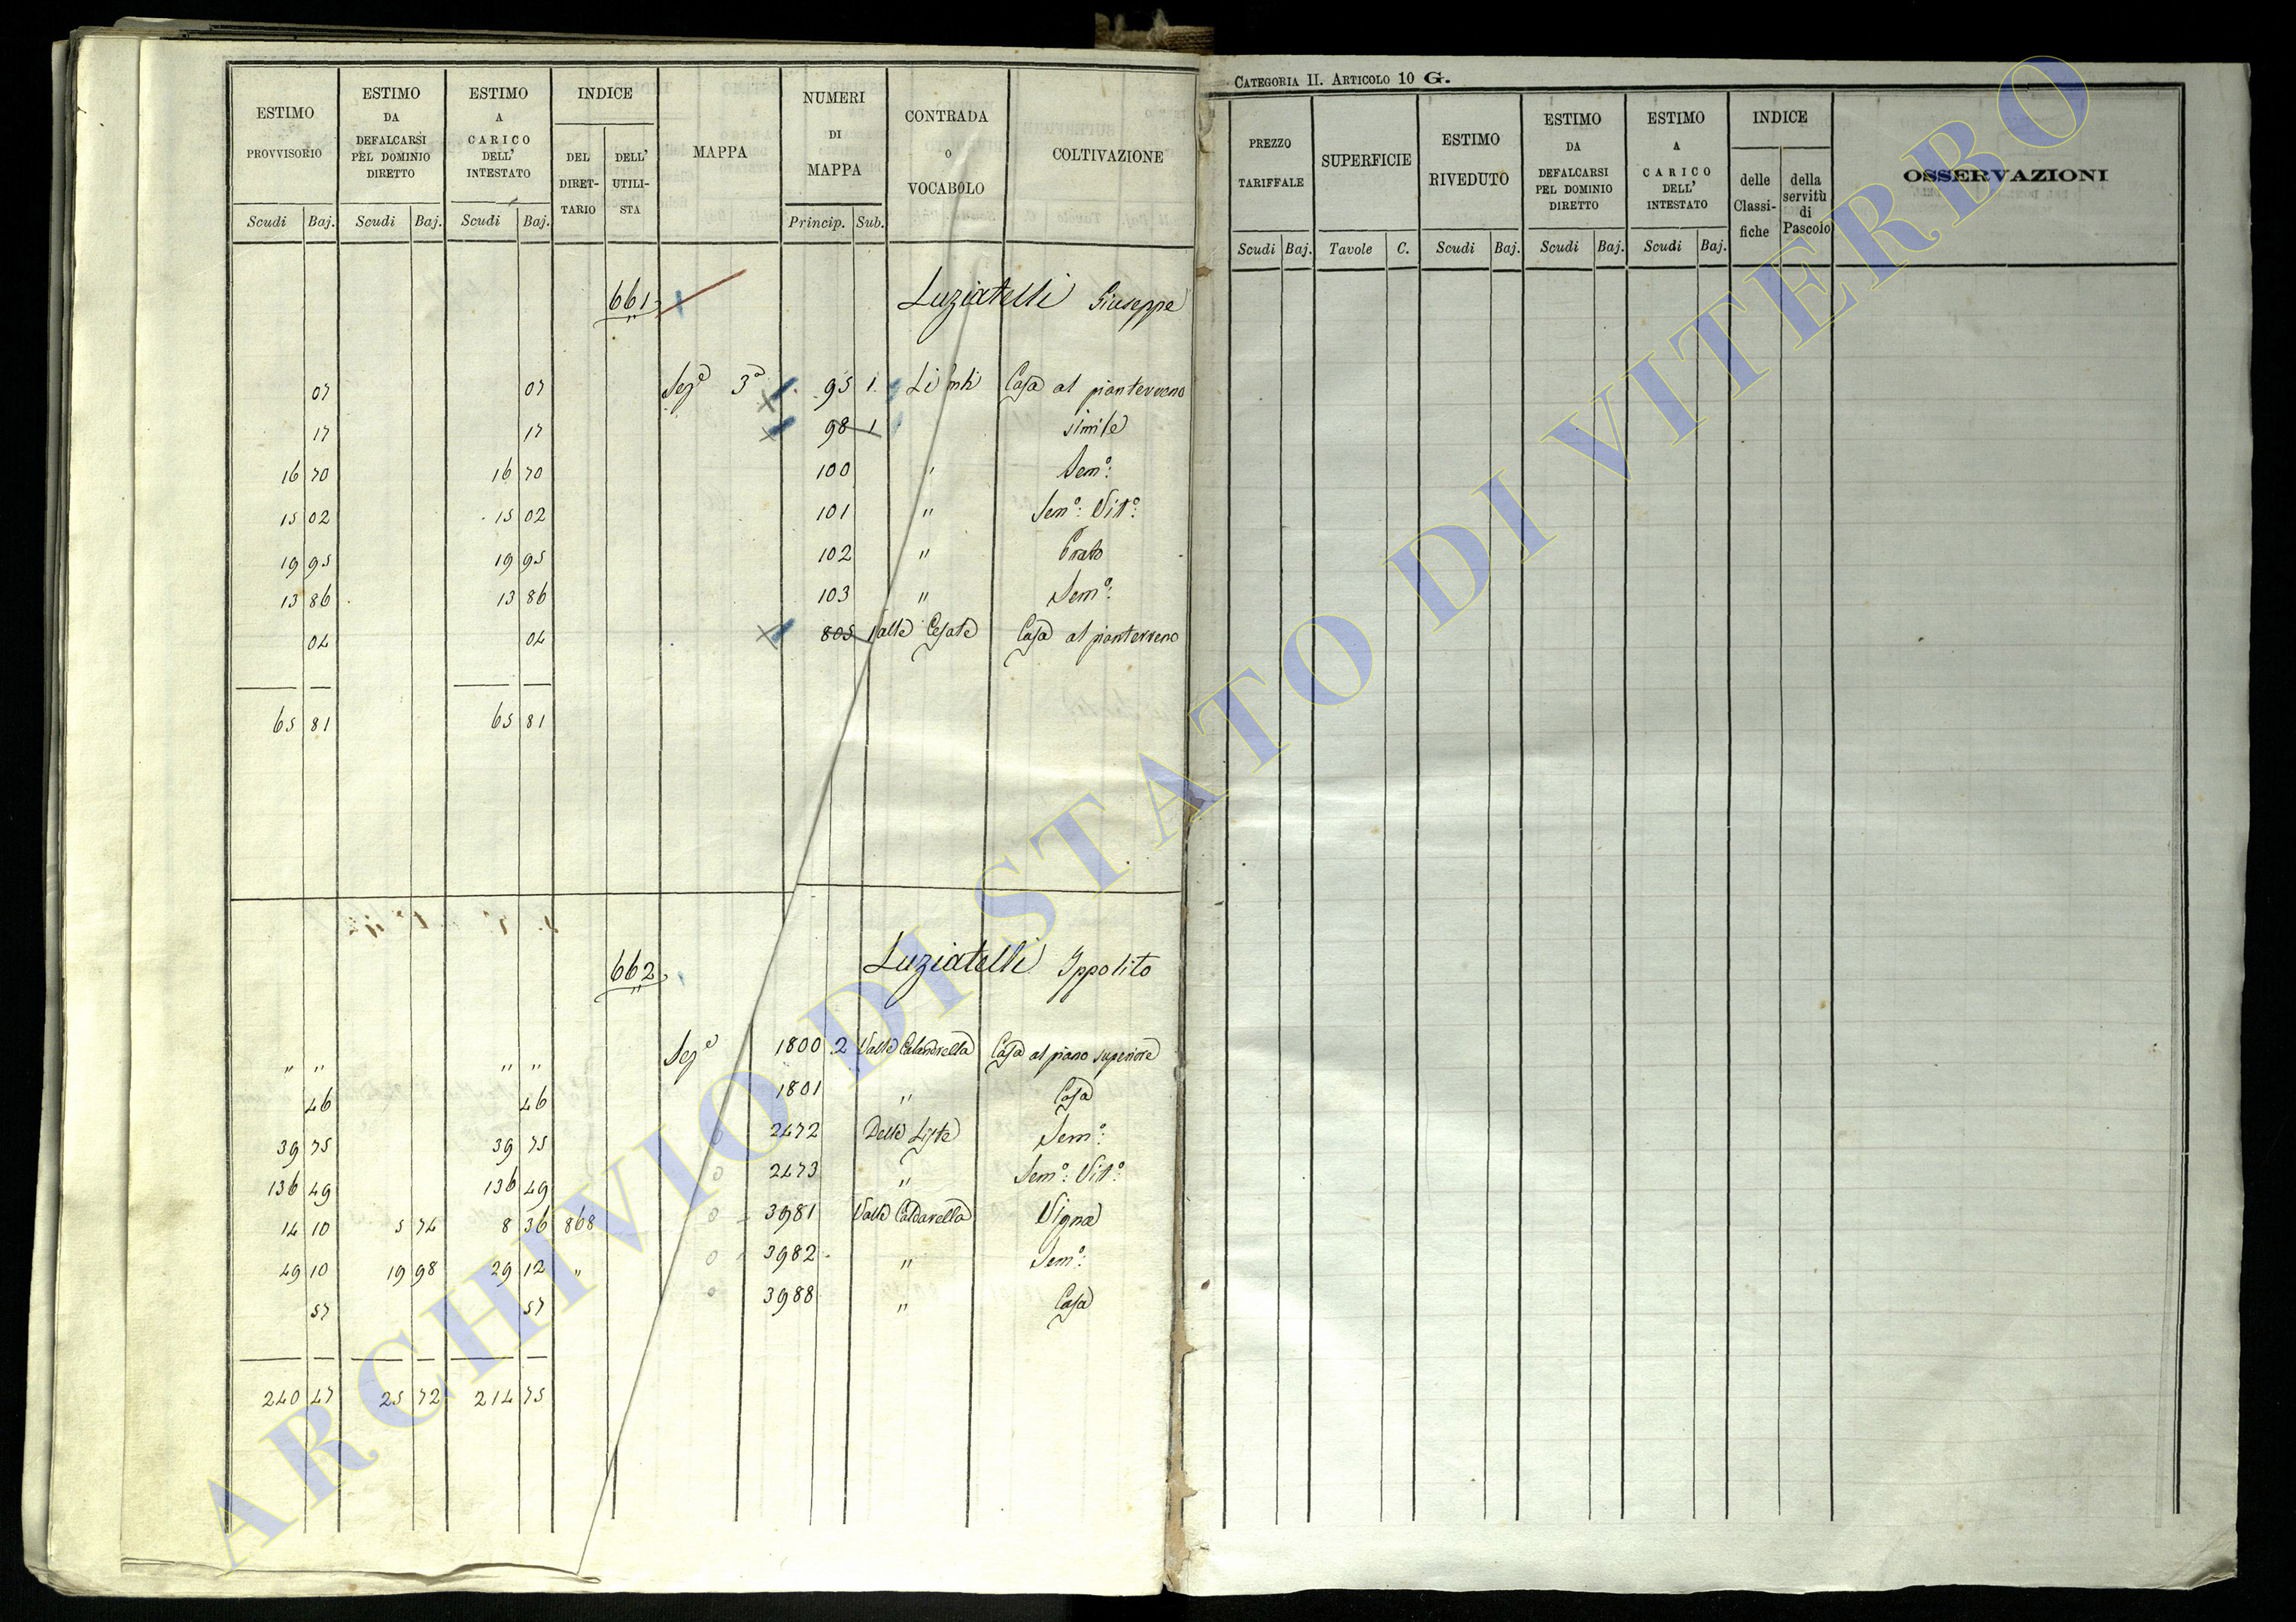 ESTIMO PROVVISORIO ESTIMO DA DEFALCARSI PEL DOMINIO DIRETTO ESTIMO A CARICO DELL' INTESTATO INDICE DEL DIRETTARIO DELL' UTILISTA MAPPA NUMERI DI MAPPA CONTRADA O VOCABOLO COLTIVAZIONE
Scudi Baj. Scudi Baj. Scudi Baj. Princip. Sub.
661 Luziatelli Giuseppe
07 07 Sezᵉ 3ª 95 1 Casa al pianterreno
17 17 98 1 simile
16 70 16 70 100 " Semᵒ:
15 02 15 02 101 " Semᵒ: Vitᵒ:
19 95 19 95 102 " Prato
13 86 13 86 103 " Semᵒ:
04 04 805 1 Valle Cesate Casa al pianterreno
65 81 65 81
662 Luziatelli Ippolito
" " " " Sezᵉ 1800 2 Valle Calandrella Casa al piano superiore
46 46 1801 " Casa
39 75 39 75 2472 Delle Liste Semᵒ:
136 49 136 49 2473 " Semᵒ: Vitᵒ:
14 10 5 74 8 36 868 3981 Valle Caldarella Vigna
49 10 19 98 29 12 " 3982 " Semᵒ:
57 57 3988 " Casa
240 47 25 72 214 75
CATEGORIA II. ARTICOLO 10 G.
PREZZO TARIFFALE SUPERFICIE ESTIMO RIVEDUTO ESTIMO DA DEFALCARSI PEL DOMINIO DIRETTO ESTIMO A CARICO DELL' INTESTATO INDICE delle Classifiche della servitù di Pascolo OSSERVAZIONI
Scudi Baj. Tavole C. Scudi Baj. Scudi Baj. Scudi Baj.
ARCHIVIO DI STATO DI VITERBO